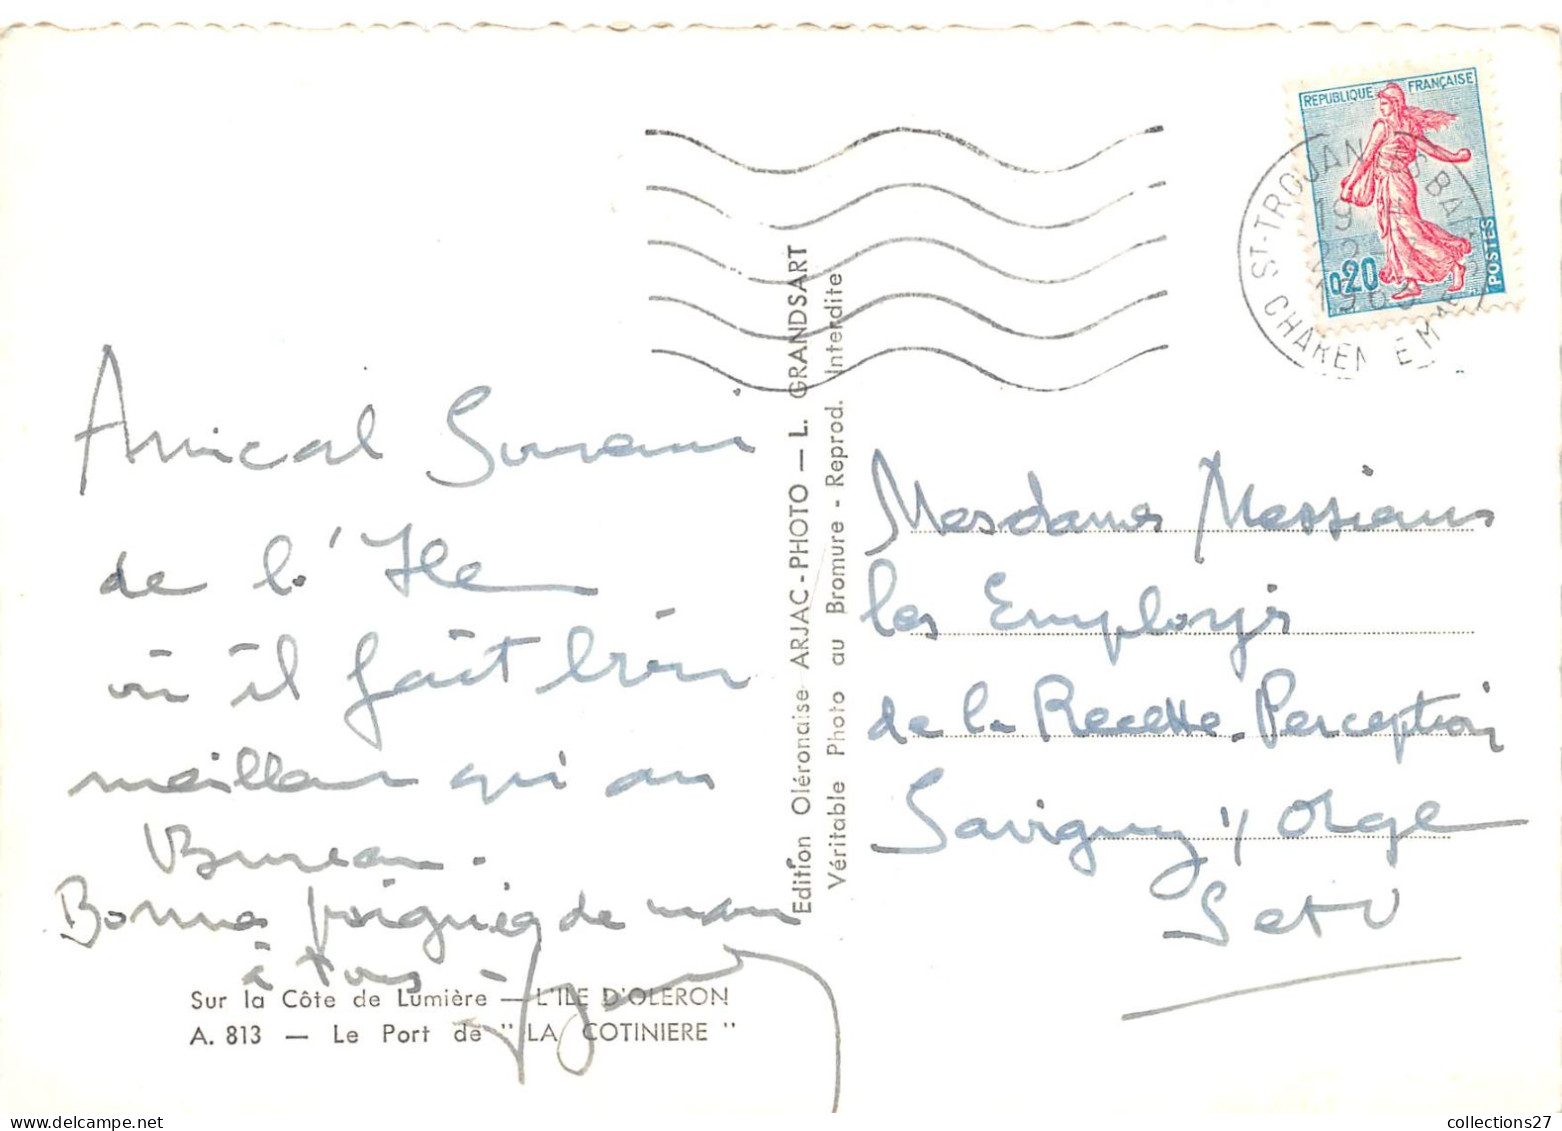 REPUBLIQUE FRANÇAISE
0,20
POSTES
ST-TROJAN LES BAINS
19
22
CHARENTE MME
Amical Souvenir
de l'Ile
où il fait bien
meilleur qu'au
Bureau.
Bonnes poignées de main
à tous -
Sur la Côte de Lumière — L'ILE D'OLERON
A. 813 — Le Port de " LA COTINIERE "
Edition Oléronaise ARJAC-PHOTO — L. GRANDSART
Véritable Photo au Bromure - Reprod. Interdite
Mesdames Messieurs
les Employés
de la Recette-Perception
Savigny s/ Orge
S et O
collections27